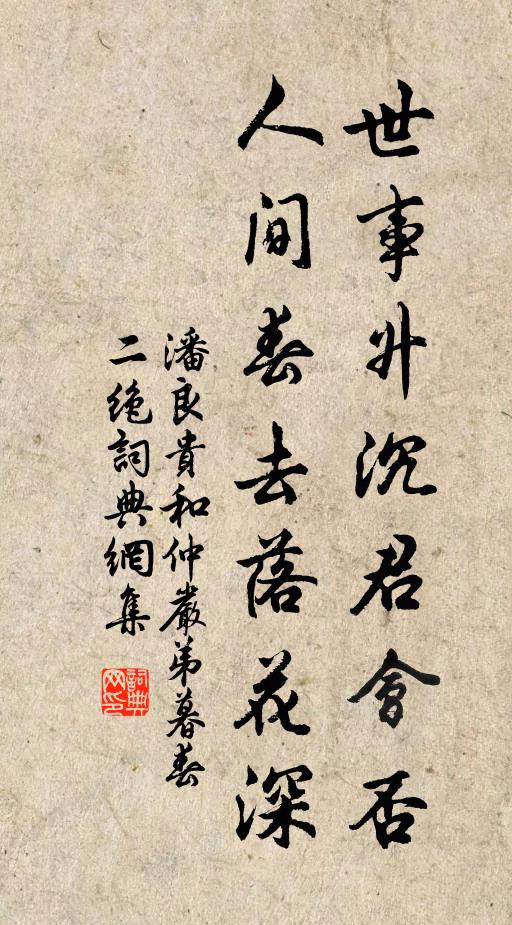 世事升沉君會否
人间春去落花深
潘良貴和仲嚴弟暮春
二絶詞典網集
詞典网印